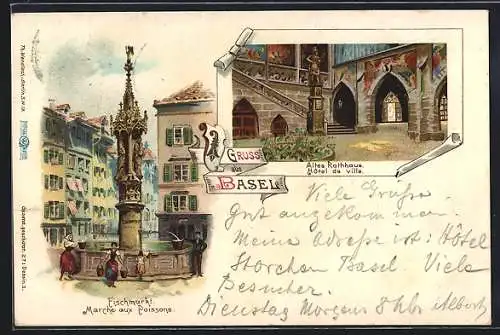 GRUSS
aus
BASEL.
Altes Rathhaus.
Hôtel de ville.
Fischmarkt.
Marché aux Poissons.
Viele Grüße.
Gut angekommen.
Meine Adresse ist: Hôtel
Storchen Basel. Viele
Besucher.
Dienstag Morgens 8 Uhr Albert
Gesetzl. geschützt. 271 Dessin